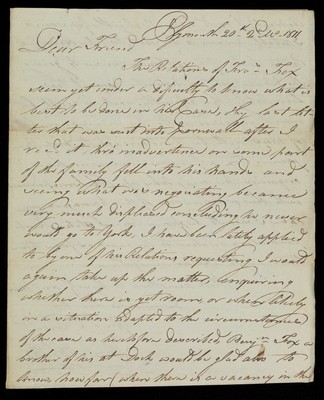 Plymouth 20th 12 Mo 1811
Dear Friend
The Relations of Fras Fox
seem yet under a difficulty to know what is
best to be done in his Case, thy last let-
ter that was sent into Cornwall after I
recd it thro' inadvertence or some part
of the family fell into his hands and
seeing what we were negotiating became
very much displeased concluding he never
would go to York, I have been lately applied
to by one of his Relations requesting I would
again take up the matter, enquiring
whether there is yet room or when likely
in a situation adapted to the circumstances
of the case as heretofore described Benjn Fox a
brother of his at Dock would be glad also to
know how far (when there is a vacancy in the